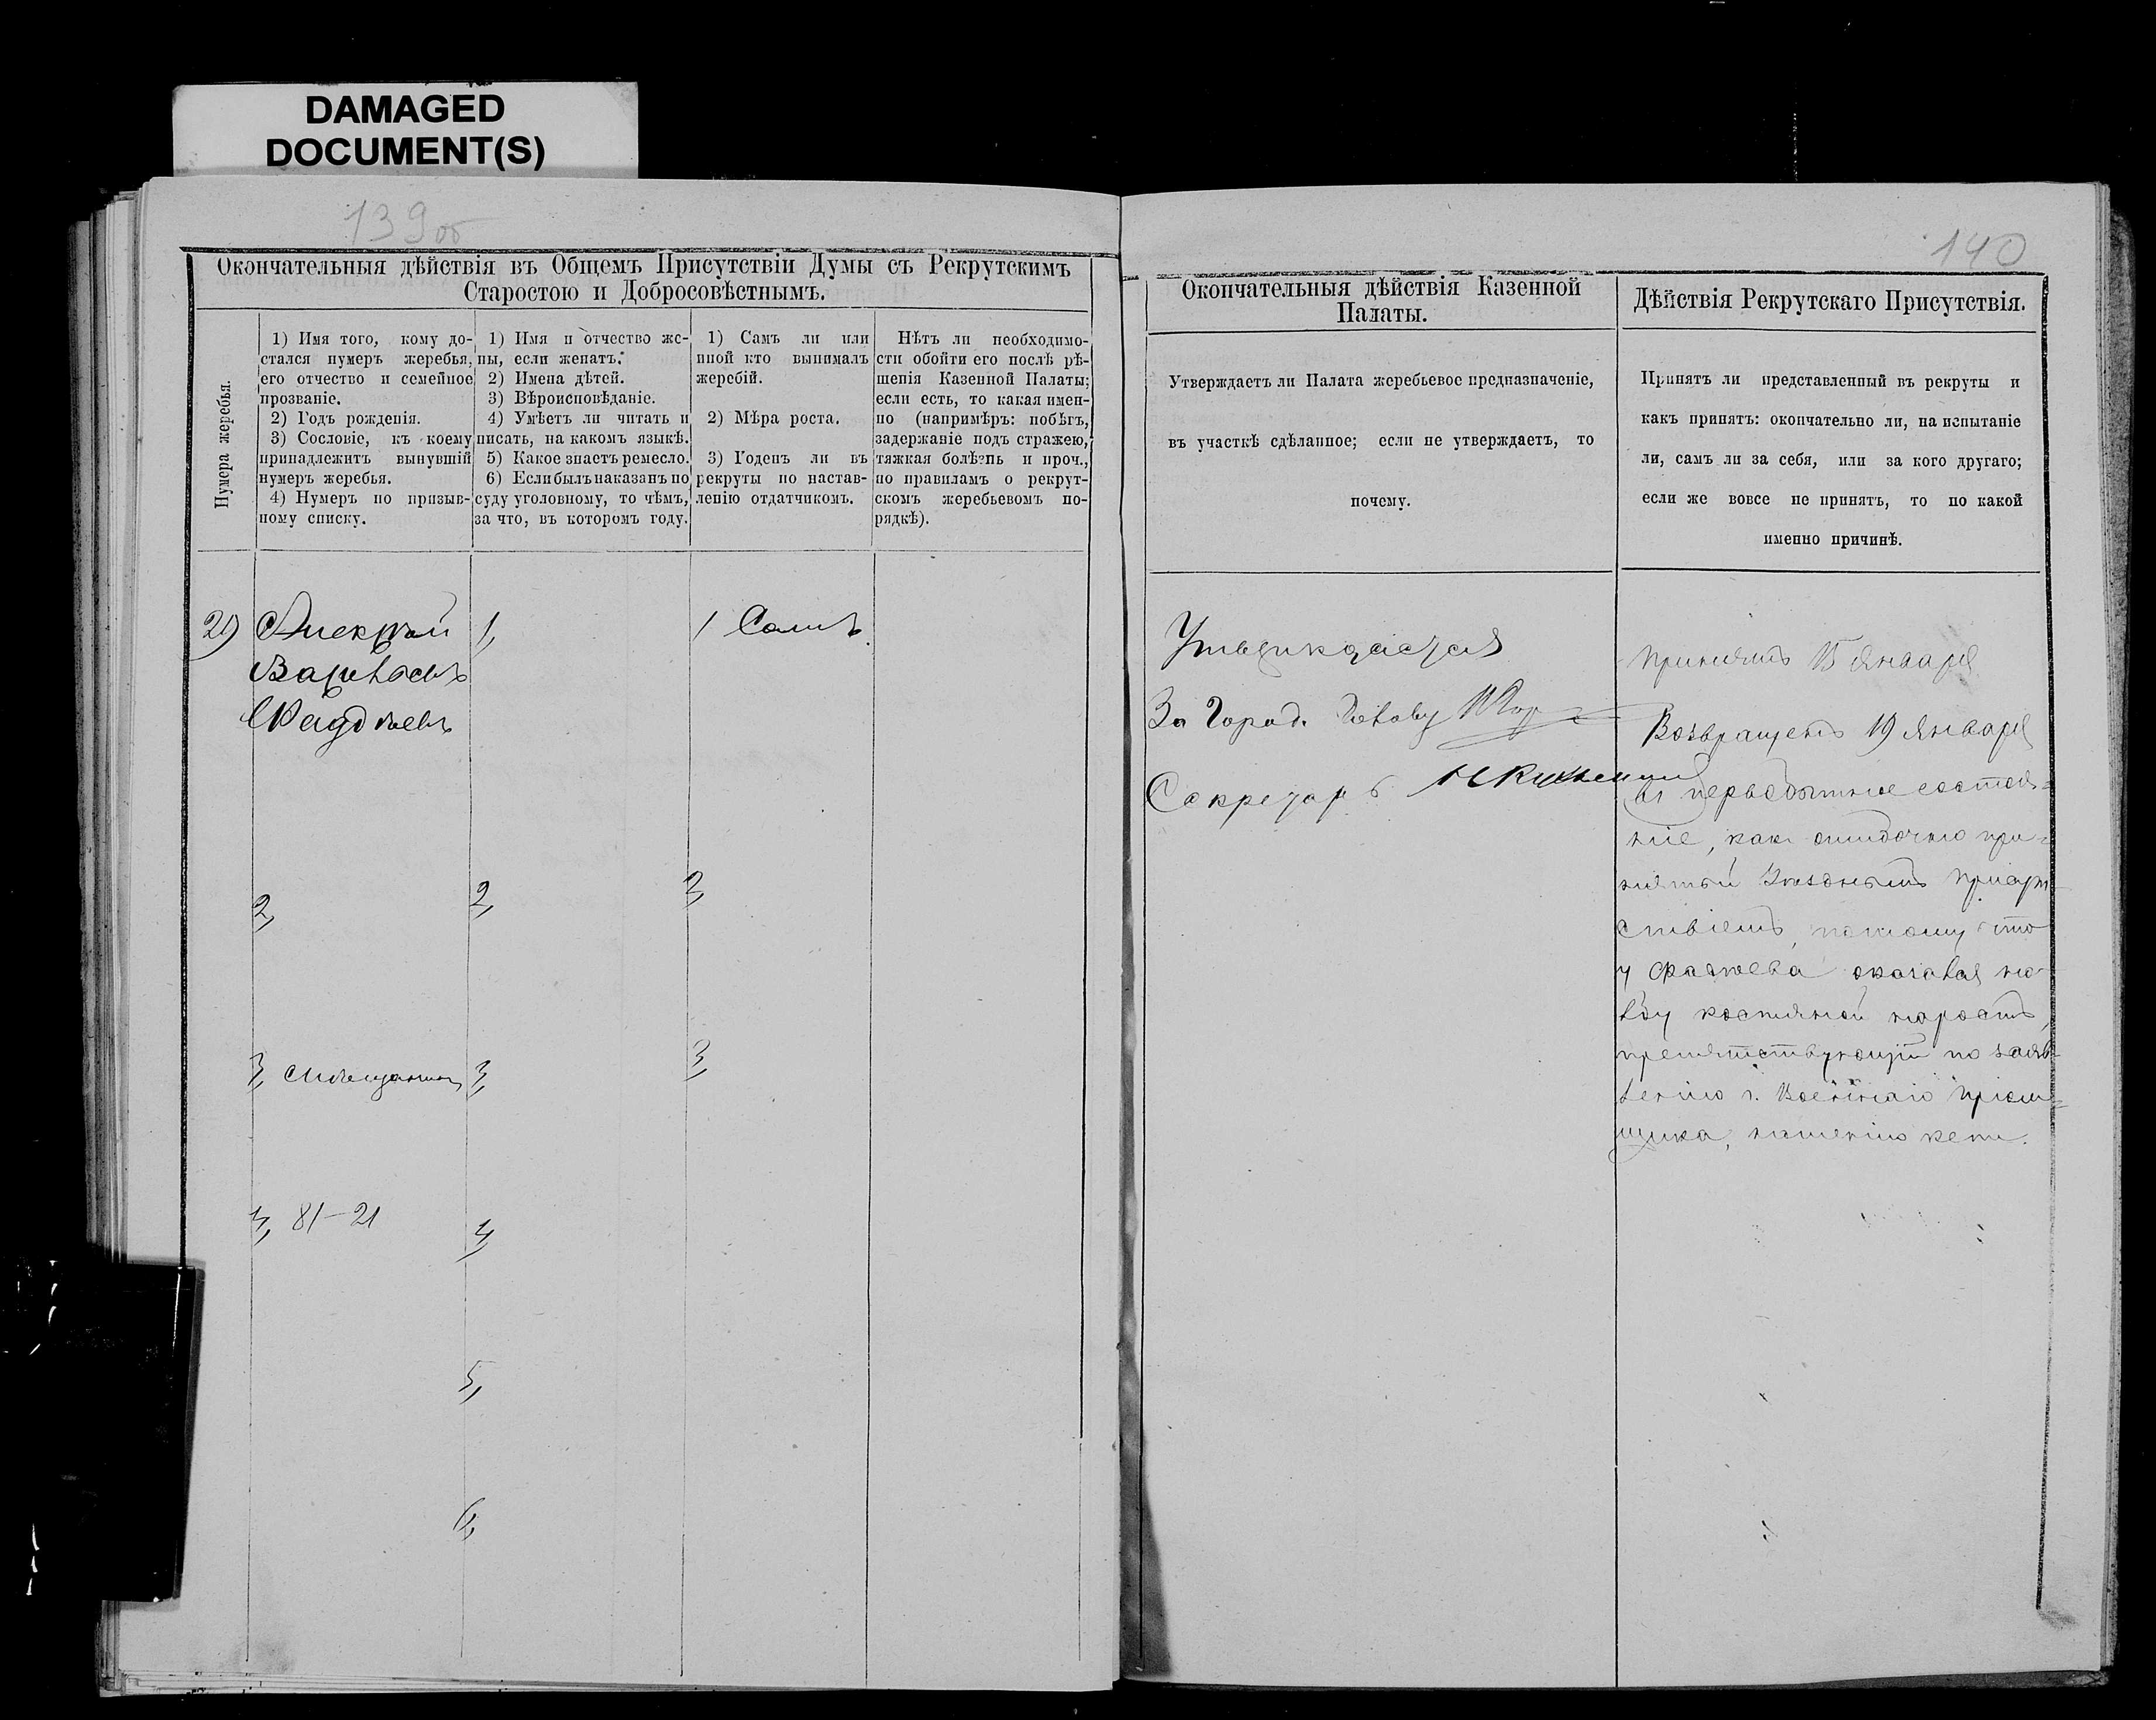 DAMAGED
DOCUMENT(S)
139 об
140
Окончательныя дѣйствія въ Общемъ Присутствіи Думы съ Рекрутскимъ
Старостою и Добросовѣстнымъ.
Нумера жеребья.
1) Имя того, кому до-
стался нумеръ жеребья,
его отчество и семейное
прозваніе.
2) Годъ рожденія.
3) Сословіе, къ коему
принадлежитъ вынувшій
нумеръ жеребья.
4) Нумеръ по призыв-
ному списку.
1) Имя и отчество же-
ны, если женатъ.
2) Имена дѣтей.
3) Вѣроисповѣданіе.
4) Умѣетъ ли читать и
писать, на какомъ языкѣ.
5) Какое знаетъ ремесло.
6) Если былъ наказанъ по
суду уголовному, то чѣмъ,
за что, въ которомъ году.
1) Самъ ли или
иной кто вынималъ
жеребій.
2) Мѣра роста.
3) Годенъ ли въ
рекруты по настав-
ленію отдатчикомъ.
Нѣтъ ли необходимо-
сти обойти его послѣ рѣ-
шенія Казенной Палаты;
если есть, то какая имен-
но (напримѣръ: побѣгъ,
задержаніе подъ стражею,
тяжкая болѣзнь и проч.,
по правиламъ о рекрут-
скомъ жеребьевомъ по-
рядкѣ).
21)
1,
1 Самъ
2,
2,
2,
3, Мѣщанинъ
3,
3,
81-21
4,
5,
6,
Окончательныя дѣйствія Казенной
Палаты.
Утверждаетъ ли Палата жеребьевое предназначеніе,
въ участкѣ сдѣланное; если не утверждаетъ, то
почему.
Утверждается
За Город. Голову
Секретарь
Дѣйствія Рекрутскаго Присутствія.
Принятъ ли представленный въ рекруты и
какъ принятъ: окончательно ли, на испытаніе
ли, самъ ли за себя, или за кого другаго;
если же вовсе не принятъ, то по какой
именно причинѣ.
Принятъ 15 Января
Возвращенъ 19 Января
въ первобытное состоя-
ніе, какъ ошибочно при-
нятый Уѣзднымъ Присут-
ствіемъ, потому что
у оказался на
лбу костяной наростъ,
препятствующій по заяв-
ленію г. Военнаго Пріем-
щика, ношенію кепи.